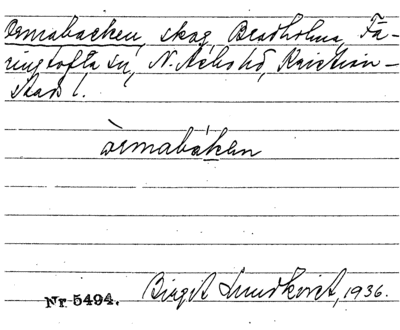 Ormabacken, skog, Bradholma, Fä-
ringtofta sn, N. Åsbo hd, Kristian-
stads l.
òrmabákan
Nr 5494. Birgit Lundkvist, 1936.